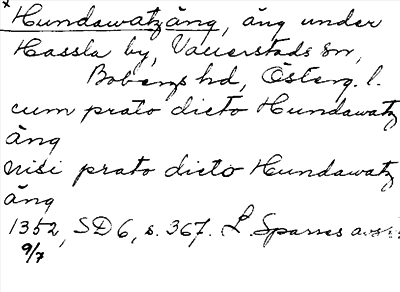 x Hundawatzäng, äng under
Hassla by, Vauerstads sn,
Bobergs hd, Österg. l.
cum prato dicto Hundawatz
äng
nisi prato dicto Hundawatz
äng
1352, SD 6, s. 367. L. Sparres
9/7